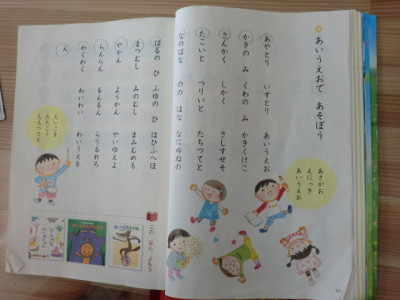 あいうえおで あそぼう
あやとり いすとり あいうえお
かきの み くわの み かきくけこ
さんかく しかく さしすせそ
たこいと つりいと たちつてと
なのはな のの はな なにぬねの
はるの ひ ふゆの ひ はひふへほ
まつむし みのむし まみむめも
やかん ようかん やいゆえよ
らんらん るんるん らりるれろ
わくわく わいわい わいうえを
ん
あさがお
えにっき
あいうえお
たいこを
たたこう
たちつてと
この ほん、よもう